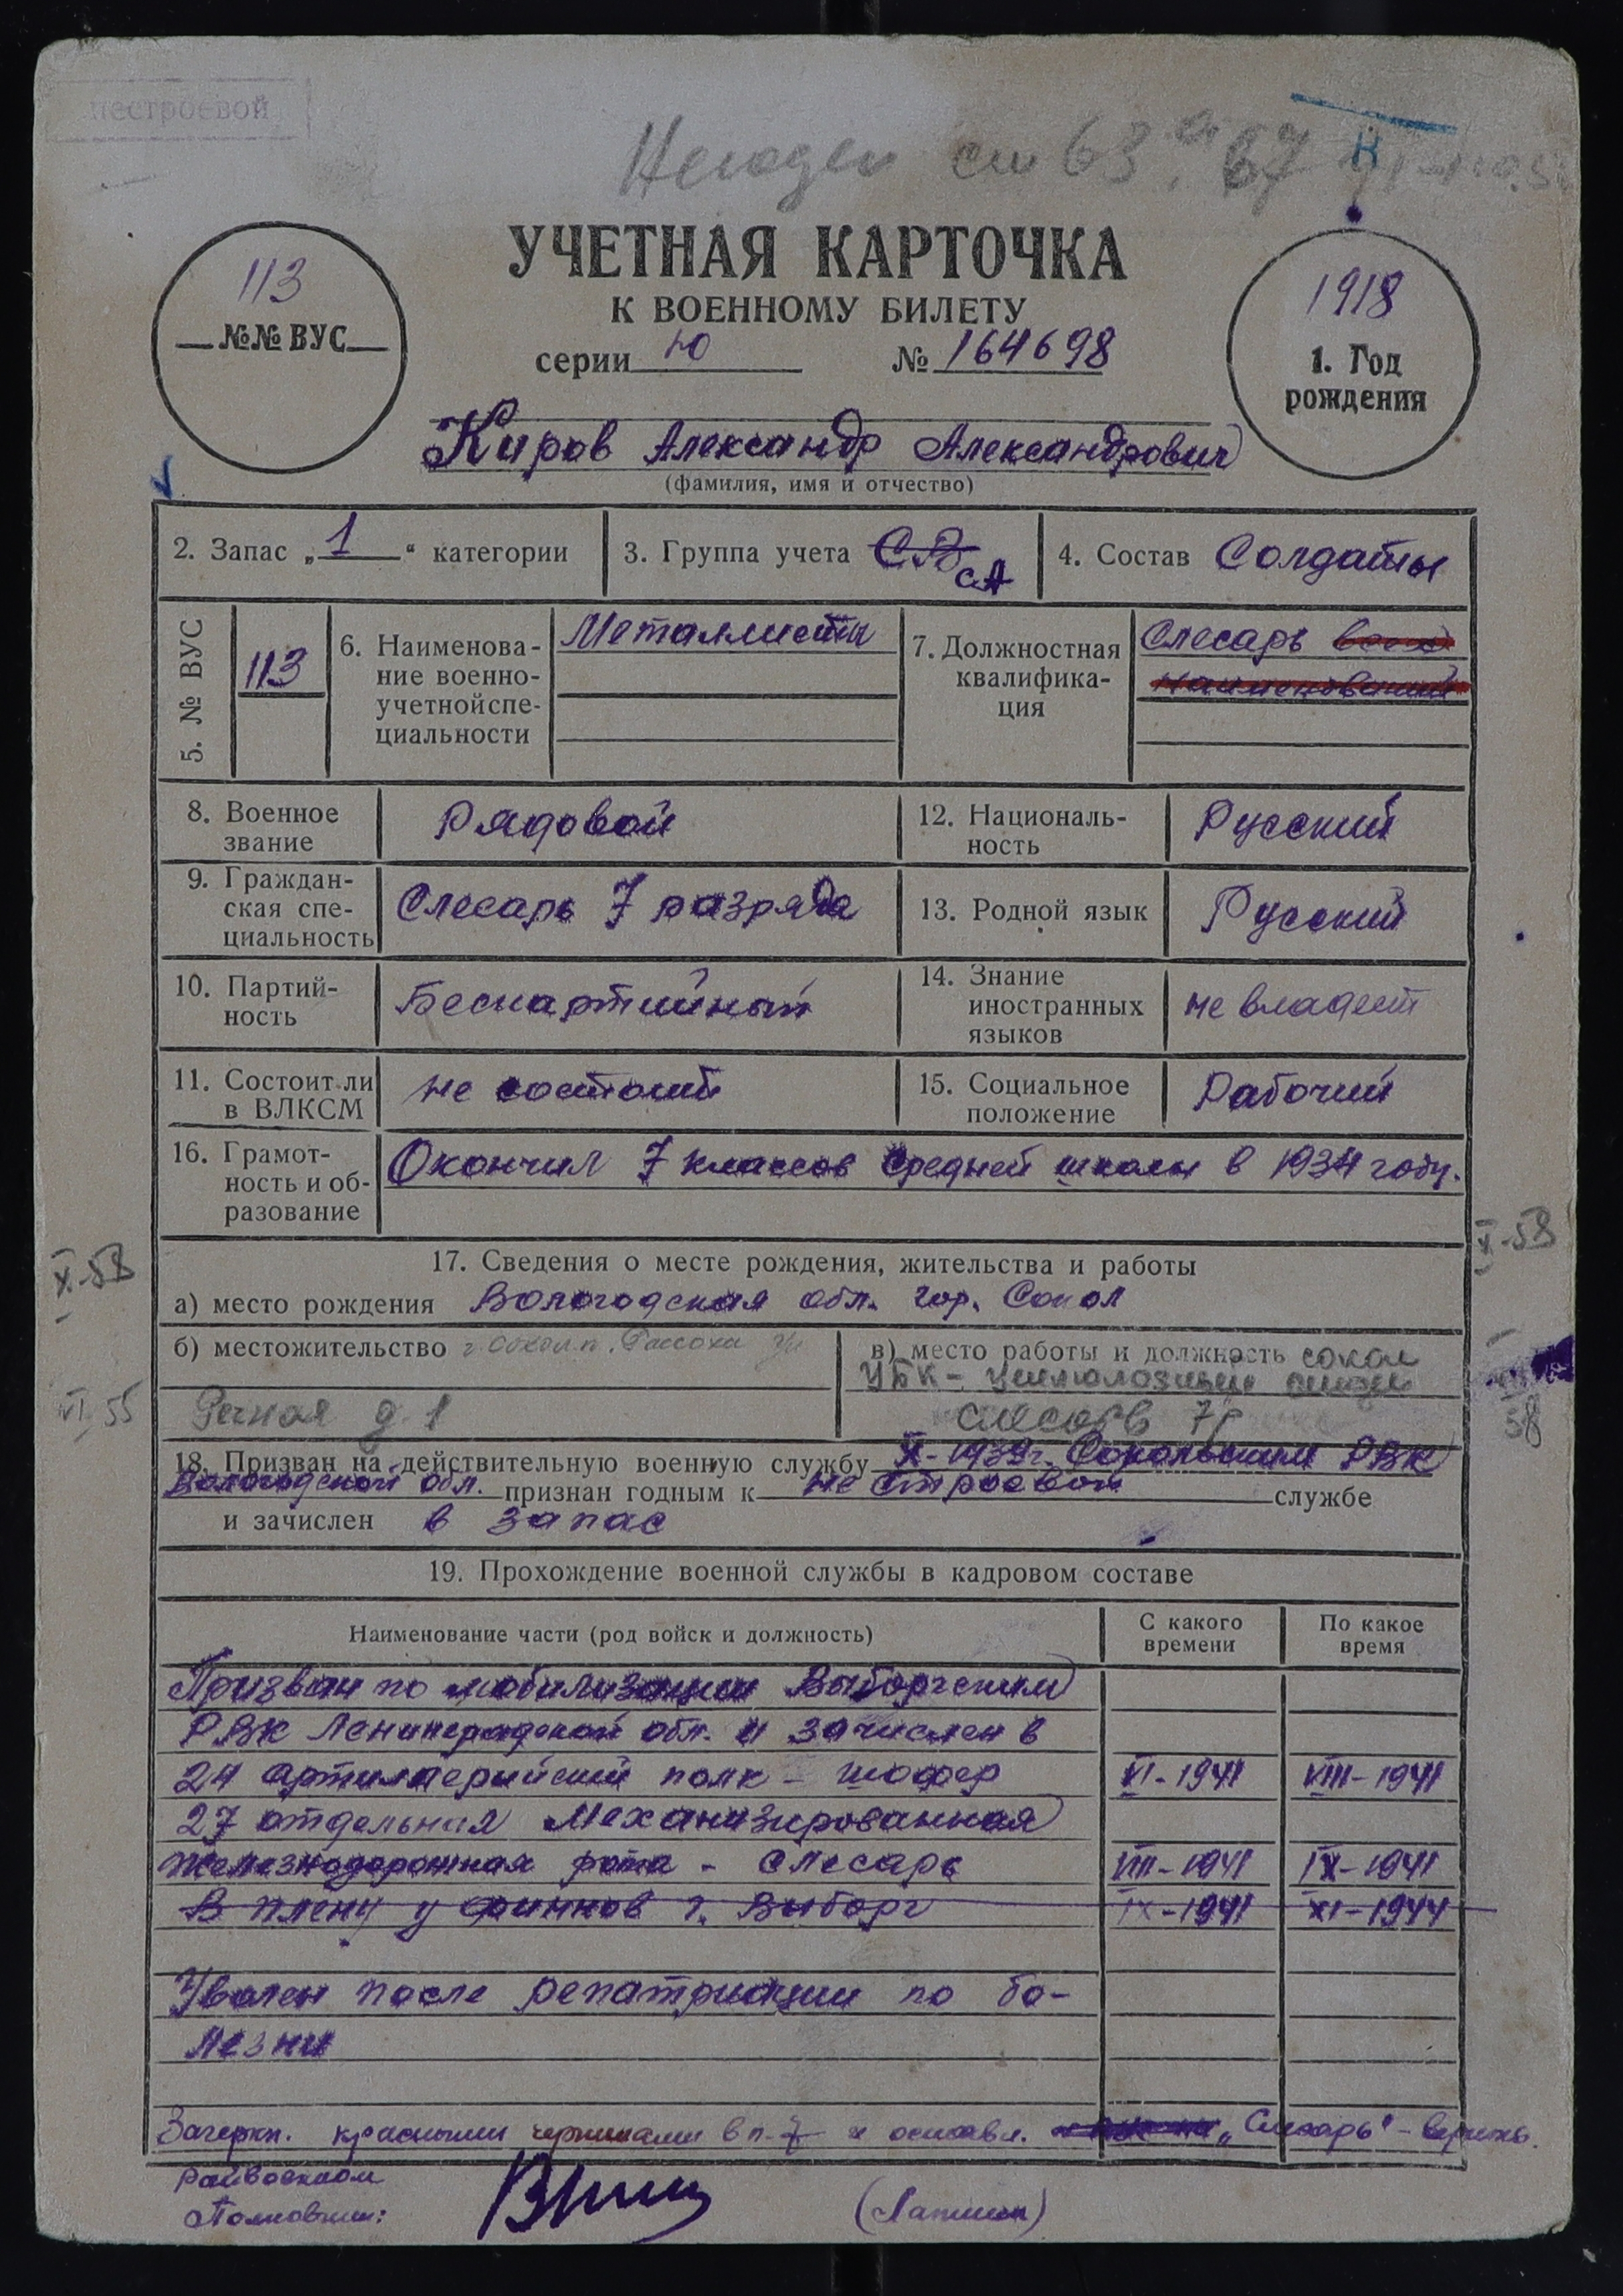 нестроевой
Негоден ст 63а, 67
Н
УЧЕТНАЯ КАРТОЧКА
К ВОЕННОМУ БИЛЕТУ
серии Ю № 164698
113
№№ ВУС
1918
1. Год
рождения
Киров Александр Александрович
(фамилия, имя и отчество)
2. Запас „1“ категории
3. Группа учета СВ СА
4. Состав Солдаты
5. № ВУС
113
6. Наименова-
ние военно-
учетной спе-
циальности
Металлисты
7. Должностная
квалифика-
ция
Слесарь всех
наименований
8. Военное
звание
Рядовой
12. Националь-
ность
Русский
9. Граждан-
ская спе-
циальность
Слесарь 7 разряда
13. Родной язык
Русский
10. Партий-
ность
Беспартийный
14. Знание
иностранных
языков
не владеет
11. Состоит ли
в ВЛКСМ
не состоит
15. Социальное
положение
Рабочий
16. Грамот-
ность и об-
разование
Окончил 7 классов средней школы в 1934 году.
X-58
X-58
17. Сведения о месте рождения, жительства и работы
а) место рождения Вологодская обл. гор. Сокол
б) местожительство г. Сокол п. Рассоха ул
Речная д. 1
VI 55
в) место работы и должность сокол
ЦБК - целлюлозный
слесарь 7р
58
18. Призван на действительную военную службу X-1939г. Сокольским РВК
Вологодской обл. признан годным к не строевой службе
и зачислен в запас
19. Прохождение военной службы в кадровом составе
Наименование части (род войск и должность)
С какого
времени
По какое
время
Призван по мобилизации Выборгским
РВК Ленинградской обл. и зачислен в
24 артиллерийский полк - шофер VI-1941 VIII-1941
27 отдельная Механизированная
железнодорожная рота - слесарь VIII-1941 IX-1941
В плену у финнов г. Выборг IX-1941 XI-1944
Уволен после репатриации по бо-
лезни
Зачеркн. красными чернилами в п. 7 и оставл. „Слесарь" - верить.
Райвоенком
Полковник:
(Лапшин)